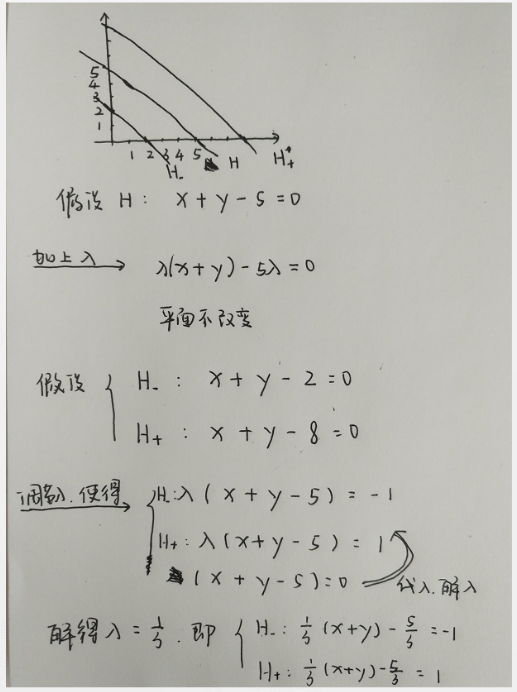 5
4
3
2
1
1 2 3 4 5
H- H H+
假设 H: x + y - 5 = 0
加上 λ → λ(x+y) - 5λ = 0
平面不改变
假设 { H-: x + y - 2 = 0
H+: x + y - 8 = 0
调整λ.使得 → { H-: λ(x + y - 5) = -1
H+: λ(x+y-5) = 1
(x + y - 5) = 0 代入.解λ
解得 λ = 1/3 . 即 { H-: 1/3 (x+y) - 5/3 = -1
H+: 1/3 (x+y) - 5/3 = 1